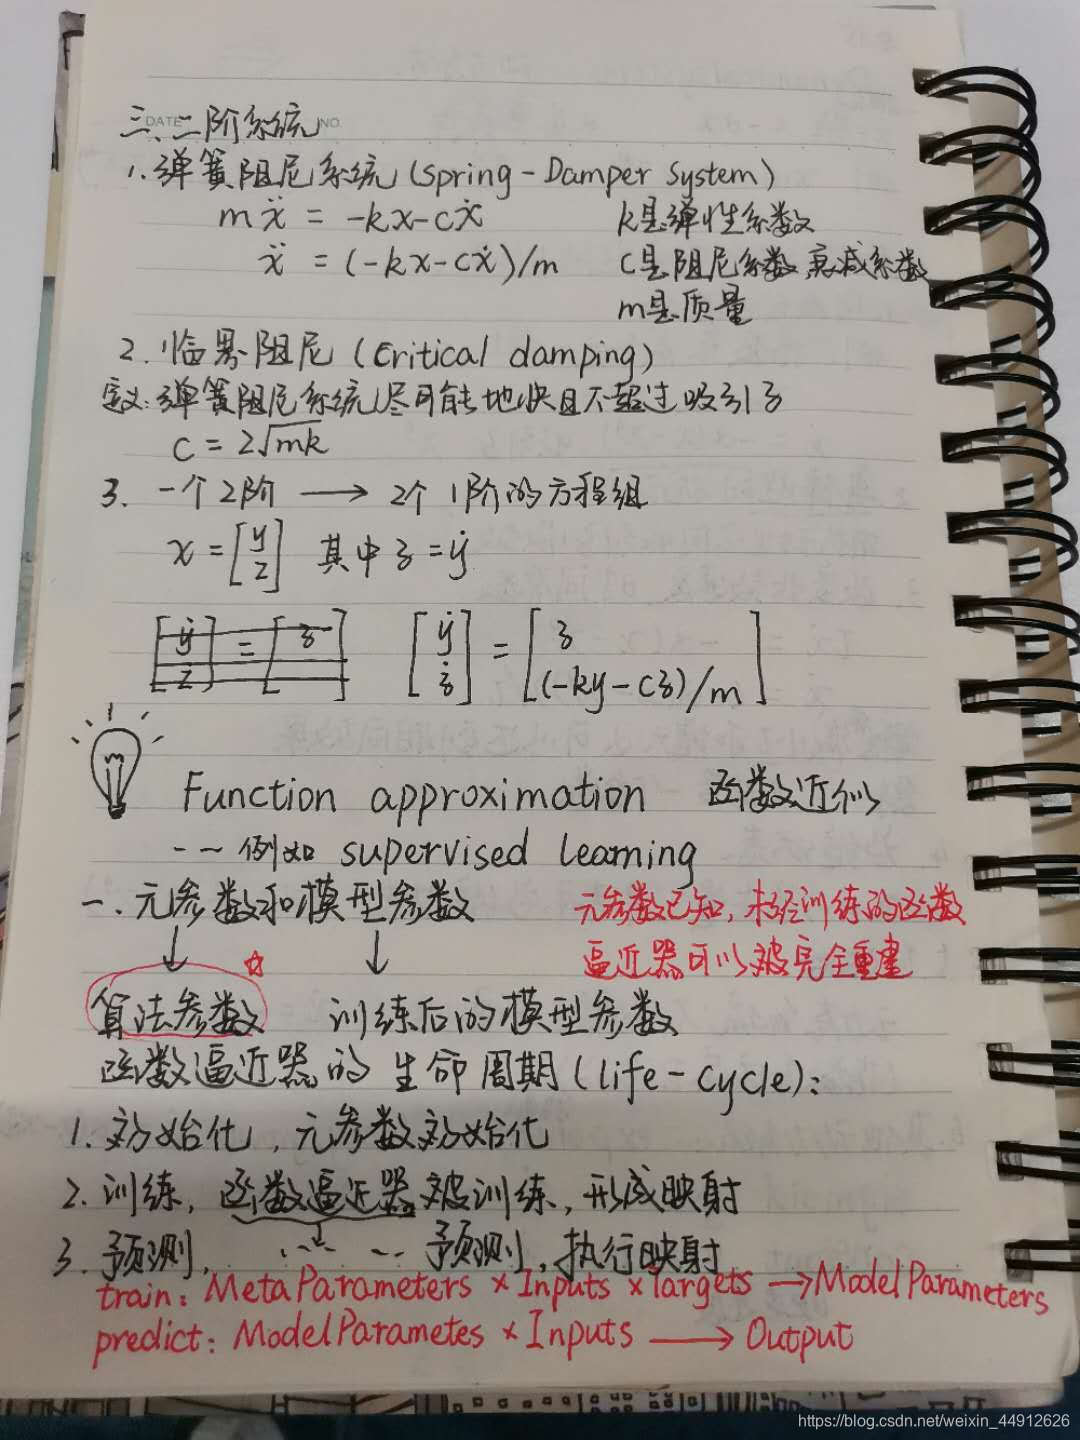 DATE NO.
三、二阶系统
1. 弹簧阻尼系统 (Spring-Damper System)
mẍ = -kx-cẋ k是弹性系数
ẍ = (-kx-cẋ)/m c是阻尼系数 衰减系数
m是质量
2. 临界阻尼 (Critical damping)
定义: 弹簧阻尼系统尽可能地快且不超过吸引子
c = 2√mk
3. 一个2阶 → 2个1阶的方程组
x = [y z] 其中 z = ẏ
[ẏ ż] = [z [ẏ ż] = [z (-ky-cz)/m]
Function approximation 函数近似
-- 例如 supervised learning
一、元参数和模型参数 元参数已知, 未经训练的函数
↓ ↓ 逼近器可以被完全重建
算法参数 ☆ 训练后的模型参数
函数逼近器的生命周期 (life-cycle):
1. 初始化, 元参数初始化
2. 训练, 函数逼近器被训练, 形成映射
3. 预测, ... -- 预测, 执行映射
train: MetaParameters × Inputs × Targets → ModelParameters
predict: ModelParametes × Inputs → Output
https://blog.csdn.net/weixin_44912626